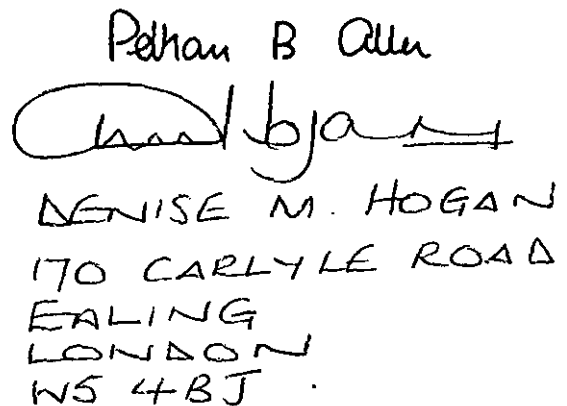 Pelham B Allen
DENISE M. HOGAN
170 CARLYLE ROAD
EALING
LONDON
W5 4BJ.